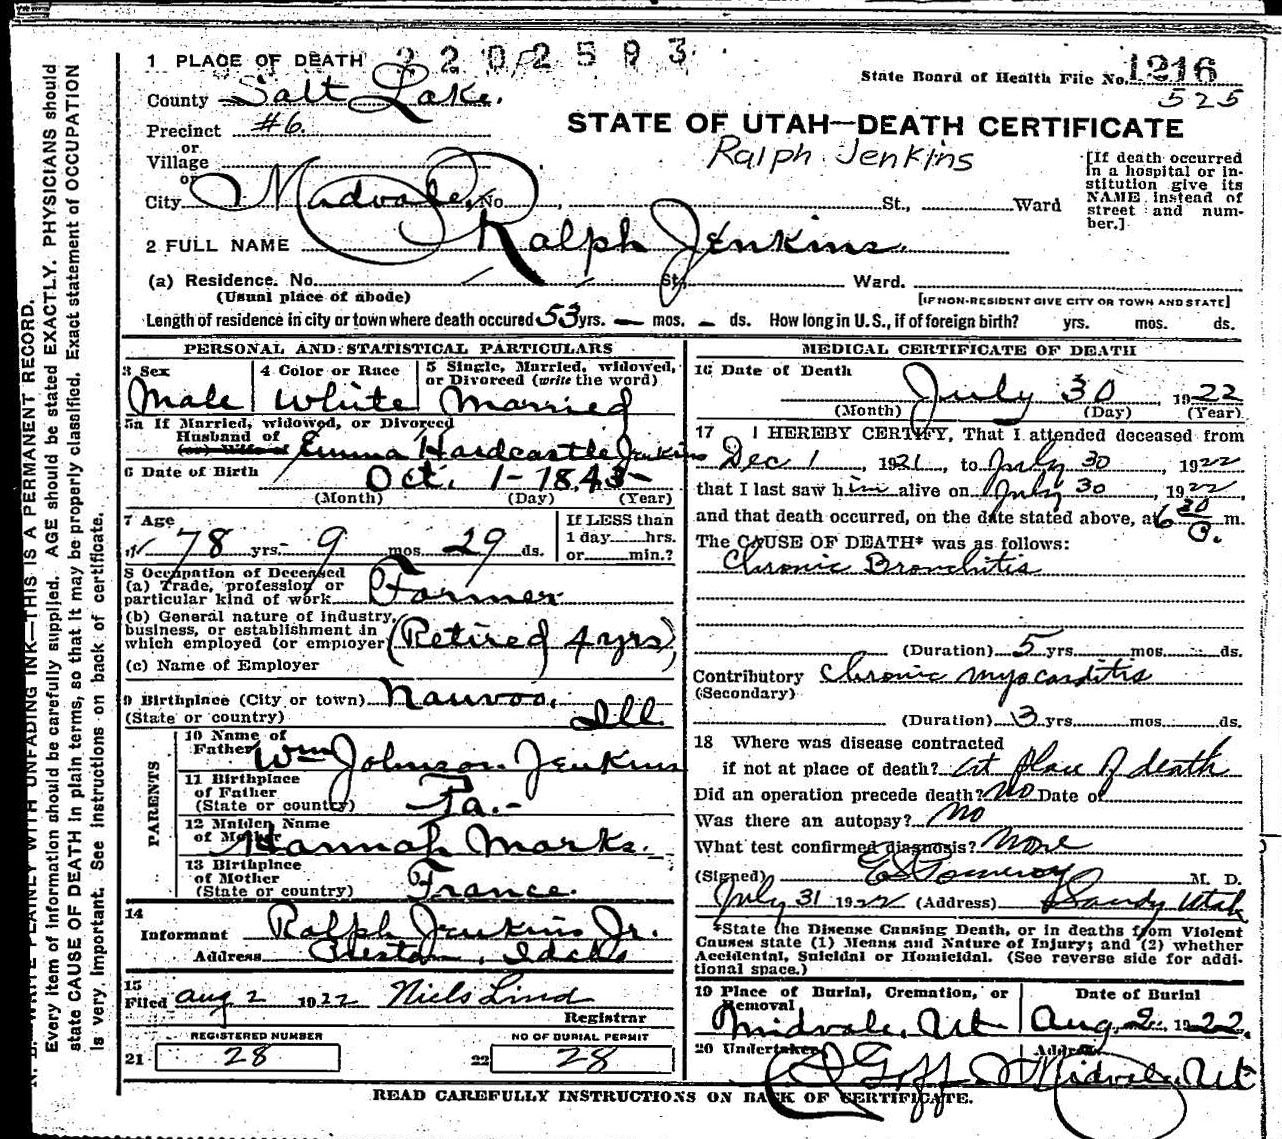 1 PLACE OF DEATH 2202593
State Board of Health File No. 1216
County Salt Lake.
525
Precinct #6.
STATE OF UTAH—DEATH CERTIFICATE
or
Village
Ralph Jenkins
[If death occurred in a hospital or institution give its NAME instead of street and number.]
or
City Midvale, No. , St., Ward
2 FULL NAME Ralph Jenkins.
(a) Residence. No. St. Ward.
(Usual place of abode) [IF NON-RESIDENT GIVE CITY OR TOWN AND STATE]
Length of residence in city or town where death occured 53 yrs. — mos. – ds. How long in U.S., if of foreign birth? yrs. mos. ds.
PERSONAL AND STATISTICAL PARTICULARS
3 Sex 4 Color or Race 5 Single, Married, widowed,
or Divorced (write the word)
Male White Married
5a If Married, widowed, or Divorced
Husband of
(or) Wife of Emma Hardcastle Jenkins
6 Date of Birth Oct. 1-1843-
(Month) (Day) (Year)
7 Age If LESS than
78 yrs. 9 mos. 29 ds. 1 day hrs.
or min.?
8 Occupation of Deceased
(a) Trade, profession or
particular kind of work Farmer
(b) General nature of industry,
business, or establishment in
which employed (or employer) (Retired 4 yrs)
(c) Name of Employer
9 Birthplace (City or town) Nauvoo,
(State or country) Ill.
PARENTS
10 Name of
Father Wm Johnson Jenkins
11 Birthplace
of Father
(State or country) Pa.-
12 Maiden Name
of Mother Hannah Marks.
13 Birthplace
of Mother
(State or country) France.
14
Informant Ralph Jenkins Jr.
Address Idaho
15
Filed Aug 2 1922 Niels Lind
Registrar
REGISTERED NUMBER NO OF BURIAL PERMIT
21 28 22 28
MEDICAL CERTIFICATE OF DEATH
16 Date of Death
July 30 1922
(Month) (Day) (Year)
17 I HEREBY CERTIFY, That I attended deceased from
Dec 1, 1921, to July 30, 1922
that I last saw him alive on July 30, 1922,
and that death occurred, on the date stated above, at 6 30 P. m.
The CAUSE OF DEATH* was as follows:
Chronic Bronchitis
(Duration) 5 yrs. mos. ds.
Contributory Chronic myocarditis
(Secondary)
(Duration) 3 yrs. mos. ds.
18 Where was disease contracted
if not at place of death? at place of death
Did an operation precede death? No Date of
Was there an autopsy? No
What test confirmed diagnosis? None
(Signed) E S Pomeroy M. D.
July 31 1922 (Address) Sandy Utah
*State the Disease Causing Death, or in deaths from Violent
Causes state (1) Means and Nature of Injury; and (2) whether
Accidental, Suicidal or Homicidal. (See reverse side for additional space.)
19 Place of Burial, Cremation, or Date of Burial
Removal
Midvale, Ut Aug. 2. 1922.
20 Undertaker Address
Goff Midvale, Ut
READ CAREFULLY INSTRUCTIONS ON BACK OF CERTIFICATE.
N. B. WRITE PLAINLY WITH UNFADING INK—THIS IS A PERMANENT RECORD.
Every item of information should be carefully supplied. AGE should be stated EXACTLY. PHYSICIANS should
state CAUSE OF DEATH in plain terms, so that it may be properly classified. Exact statement of OCCUPATION
is very important. See instructions on back of certificate.